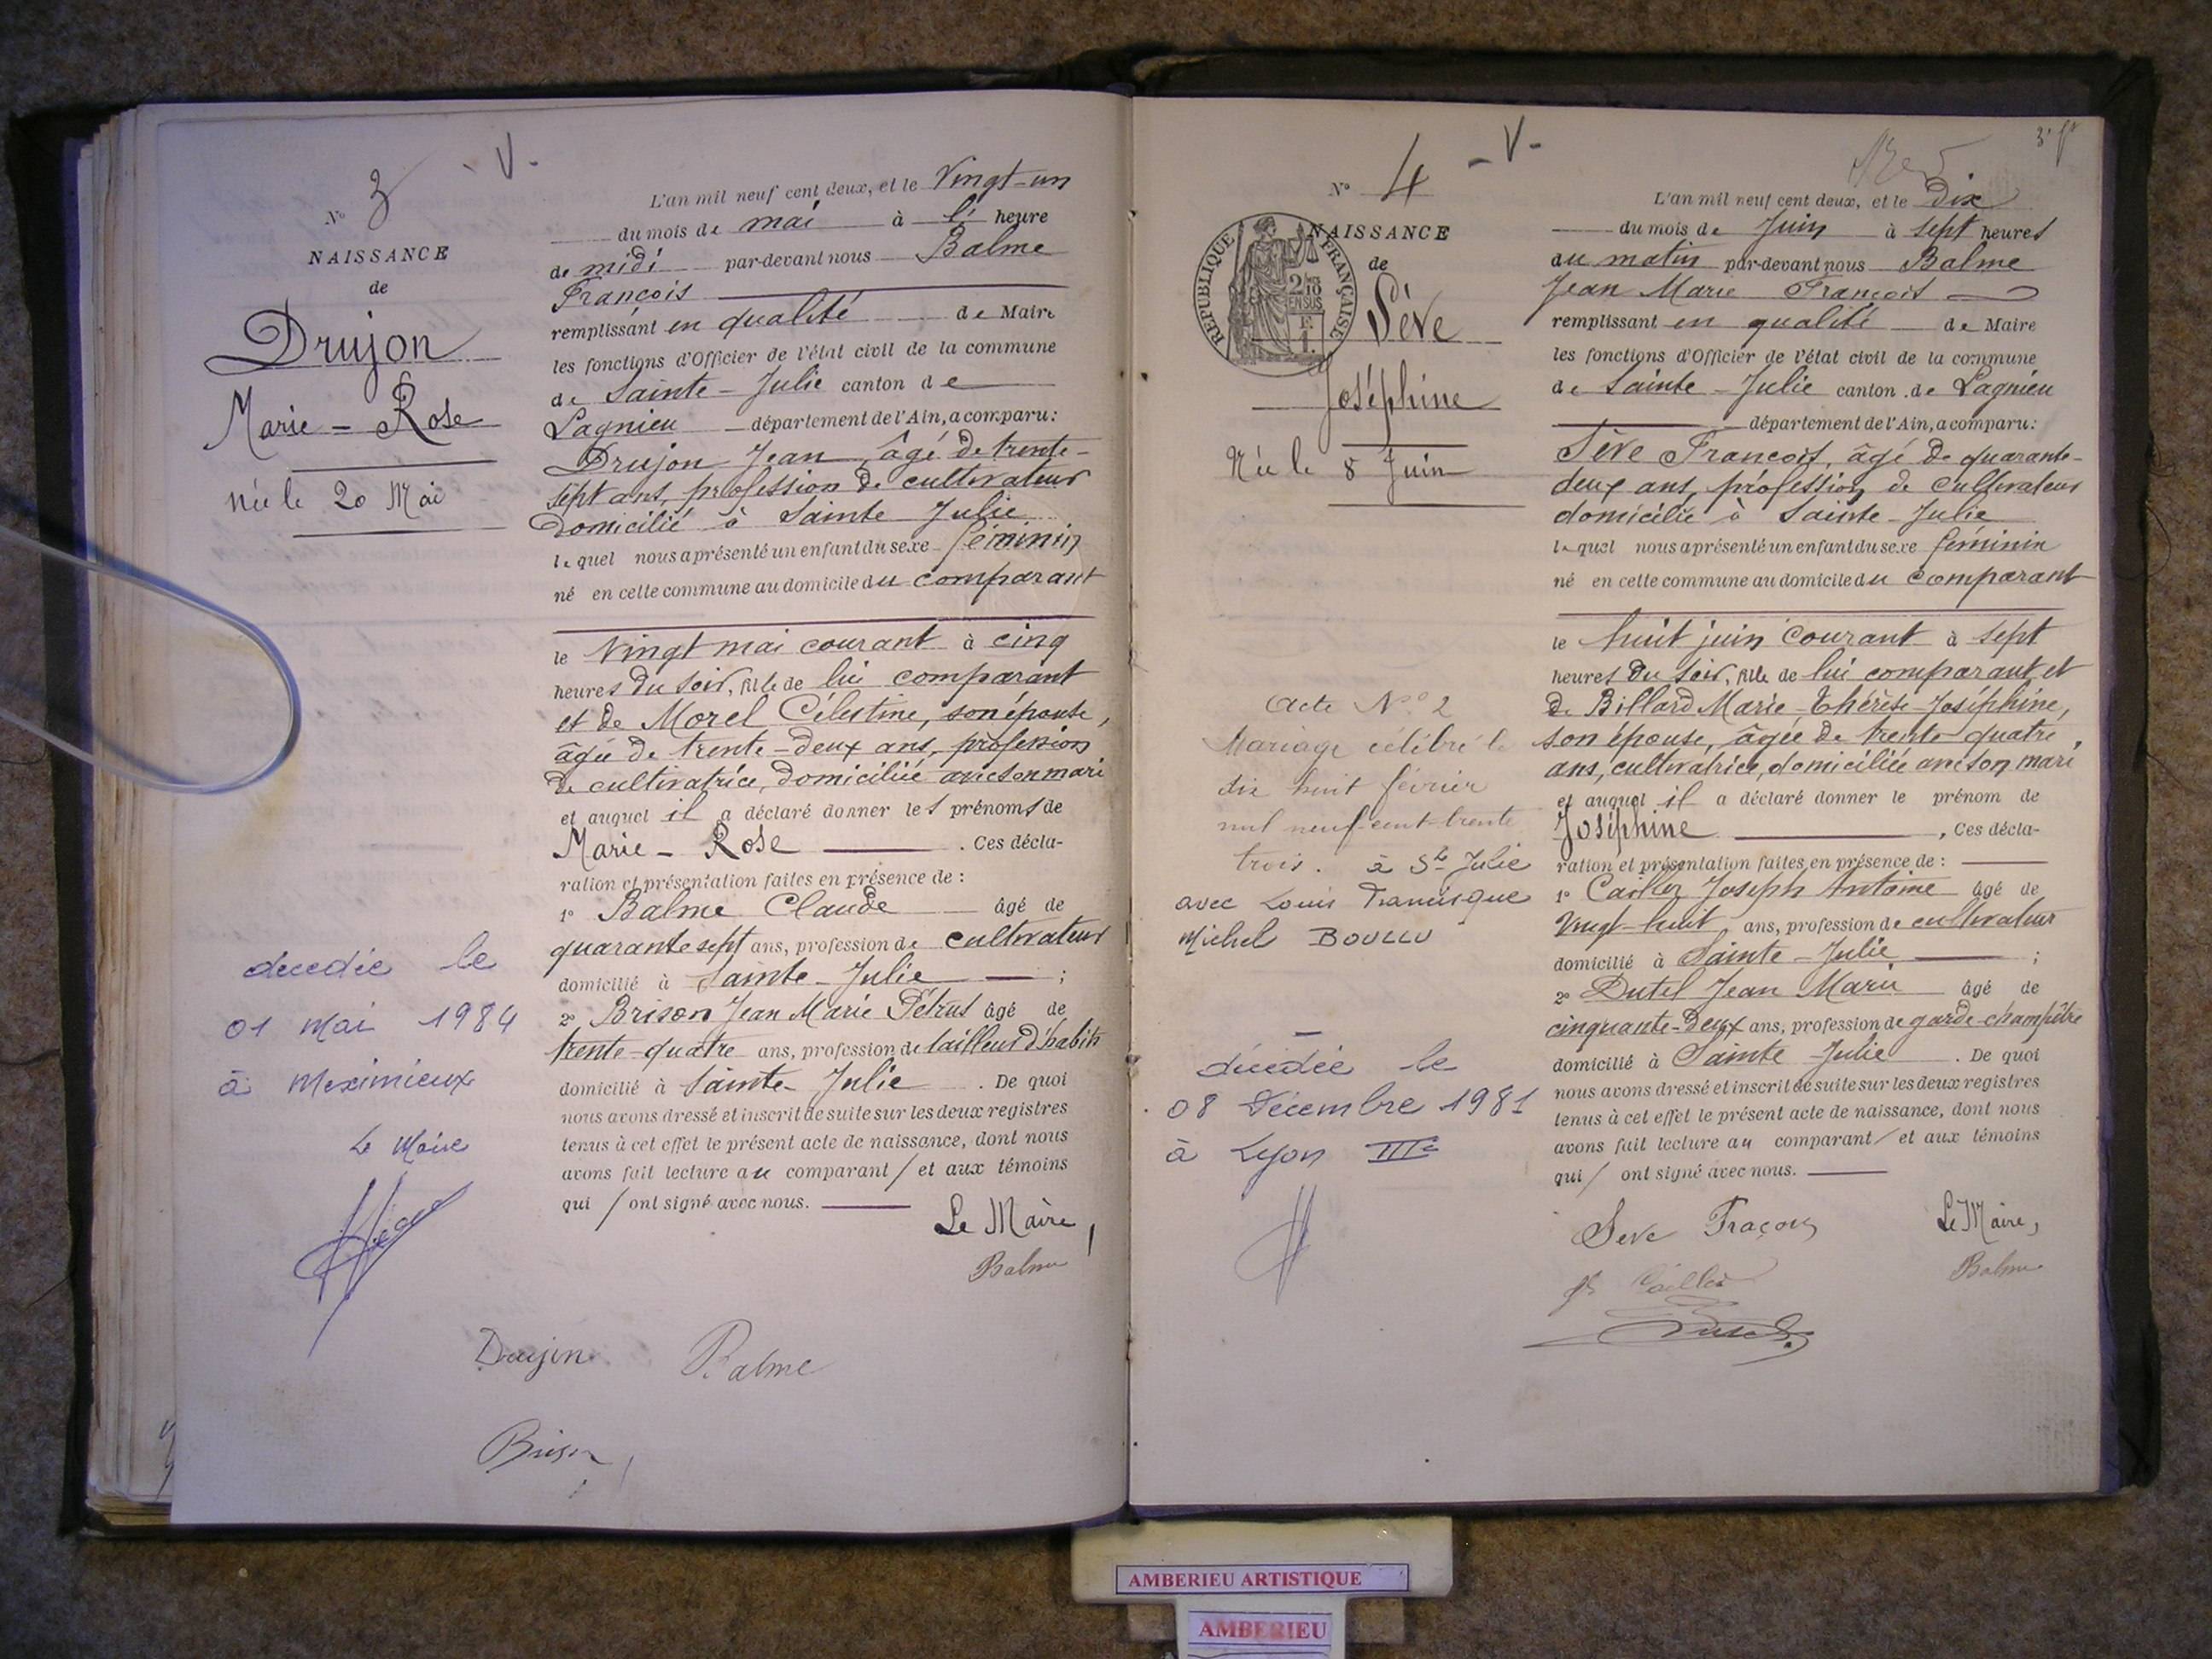 - V -
N° 3
NAISSANCE
de
Drujon
Marie - Rose
née le 20 Mai
décédée le
01 mai 1984
à Meximieux
Le Maire
L'an mil neuf cent deux, et le Vingt-un
du mois de mai à heure
de midi par-devant nous Balme
François
remplissant en qualité de Maire
les fonctions d'Officier de l'état civil de la commune
de Sainte-Julie canton de
Lagnieu département de l'Ain, a comparu:
Drujon Jean, âgé de trente-
sept ans, profession de cultivateur
domicilié à Sainte Julie
lequel nous a présenté un enfant du sexe féminin
né en cette commune au domicile du comparant
le vingt mai courant à cinq
heures du soir, fille de lui comparant
et de Morel Célestine, son épouse,
âgée de trente-deux ans, profession
de cultivatrice, domiciliée avec son mari
et auquel il a déclaré donner les prénoms de
Marie - Rose . Ces décla-
ration et présentation faites en présence de :
1° Balme Claude âgé de
quarante sept ans, profession de cultivateur
domicilié à Sainte-Julie ;
2° Brison Jean Marie Pétrus âgé de
trente-quatre ans, profession de tailleur d'habits
domicilié à Sainte-Julie . De quoi
nous avons dressé et inscrit de suite sur les deux registres
tenus à cet effet le présent acte de naissance, dont nous
avons fait lecture au comparant / et aux témoins
qui / ont signé avec nous.
Le Maire,
Balme
Drujon Balme
Brison
- V -
N° 4
NAISSANCE
de
RÉPUBLIQUE FRANÇAISE
2/10
EN SUS
F.
1.
Sève
Joséphine
Née le 8 Juin
Acte N° 2
Mariage célébré le
dix huit février
mil neuf cent trente
trois. à Ste Julie
avec Louis Francisque
Michel BOULLU
décédée le
08 Décembre 1981
à Lyon IIIe
L'an mil neuf cent deux, et le Dix
du mois de Juin à sept heures
du matin par-devant nous Balme
Jean Marie François
remplissant en qualité de Maire
les fonctions d'Officier de l'état civil de la commune
de Sainte-Julie canton de Lagnieu
département de l'Ain, a comparu:
Sève François, âgé de quarante-
deux ans, profession de cultivateur
domicilié à Sainte-Julie
lequel nous a présenté un enfant du sexe féminin
né en cette commune au domicile du comparant
le huit juin courant à sept
heures du soir, fille de lui comparant et
de Billard Marie-Thérèse-Joséphine,
son épouse, âgée de trente quatre
ans, cultivatrice, domiciliée avec son mari
et auquel il a déclaré donner le prénom de
Joséphine , Ces décla-
ration et présentation faites en présence de :
1° Cailler Joseph Antoine âgé de
Vingt-huit ans, profession de cultivateur
domicilié à Sainte-Julie ;
2° Dutel Jean Marie âgé de
cinquante-deux ans, profession de garde-champêtre
domicilié à Sainte-Julie . De quoi
nous avons dressé et inscrit de suite sur les deux registres
tenus à cet effet le présent acte de naissance, dont nous
avons fait lecture au comparant / et aux témoins
qui / ont signé avec nous.
Seve Fraçois Le Maire,
Cailler Balme
Dutel
AMBERIEU ARTISTIQUE
AMBERIEU